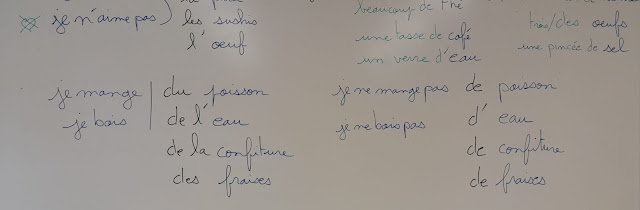 beaucoup de thé
je n'aime pas) les sushis
l'oeuf
une tasse de café
un verre d'eau
trois/des oeufs
une pincée de sel
je mange
je bois
du poisson
de l'eau
de la confiture
des fraises
je ne mange pas
je ne bois pas
de poisson
d'eau
de confiture
de fraises